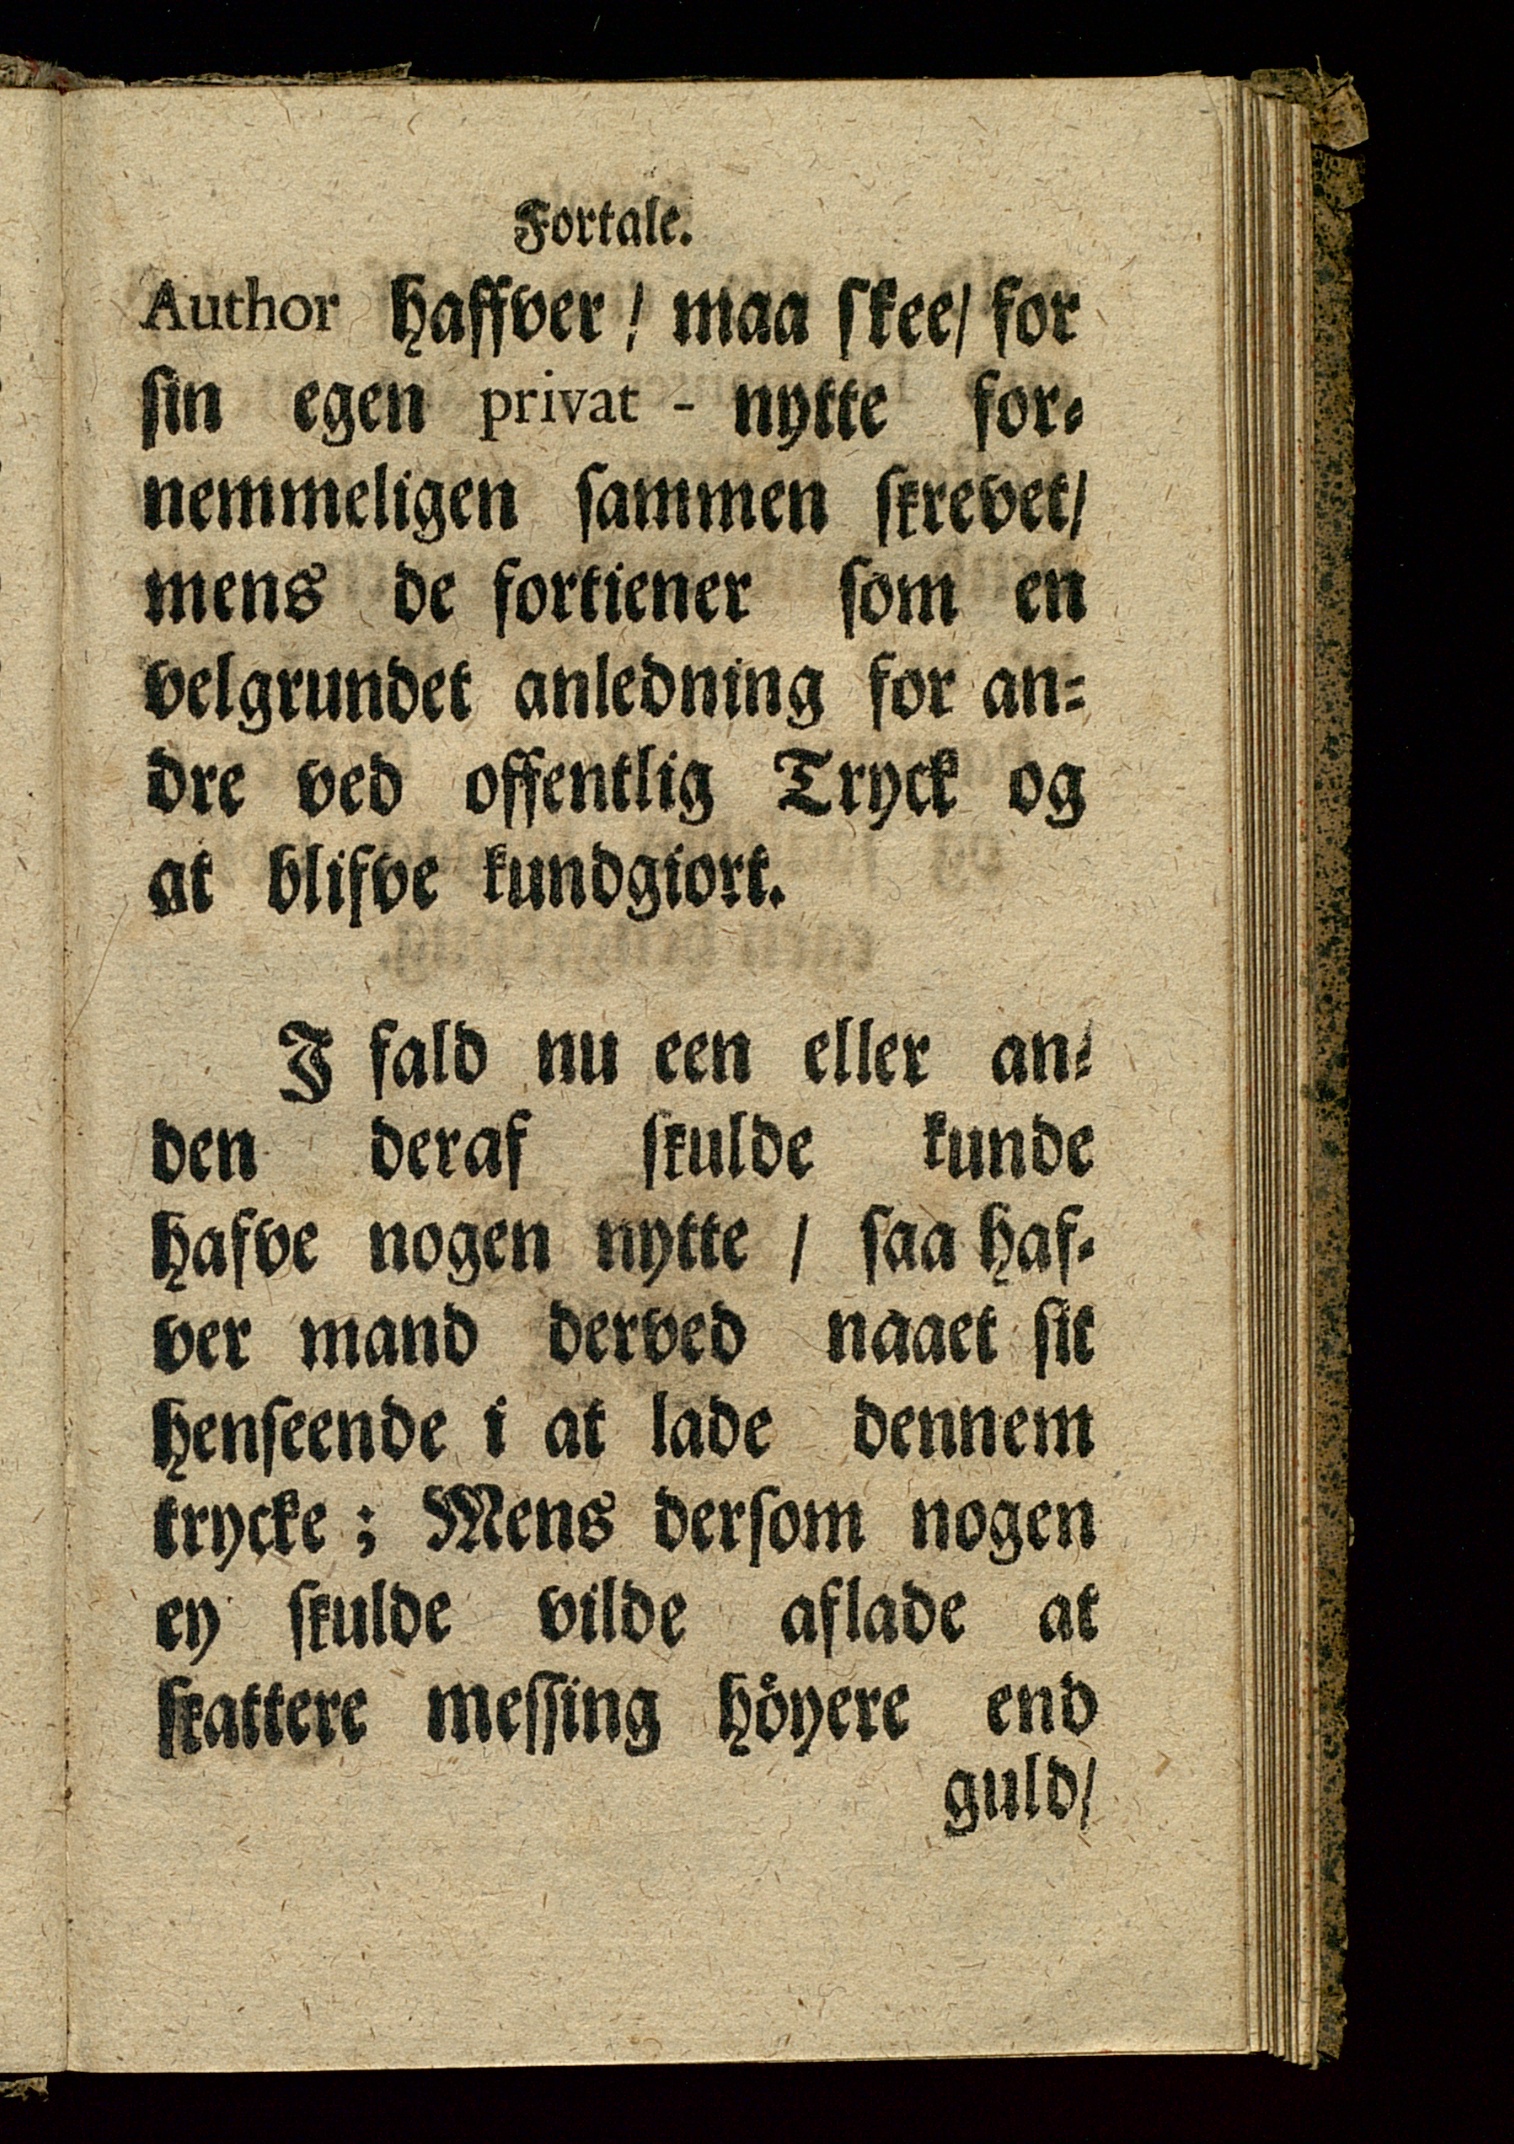 Fortale.
Author haffver / maa skee/ for
sin egen privat - nytte for-
nemmeligen sammen skrevet/
mens de fortiener som en
velgrundet anledning for an-
dre ved offentlig Tryck og
at blifve kundgiort.
I fald nu een eller an-
den deraf skulde kunde
hafve nogen nytte / saa haf-
ver mand derved naaet sit
henseende i at lade dennem
trycke ; Mens dersom nogen
ey skulde vilde aflade at
skattere messing höyere end
guld/